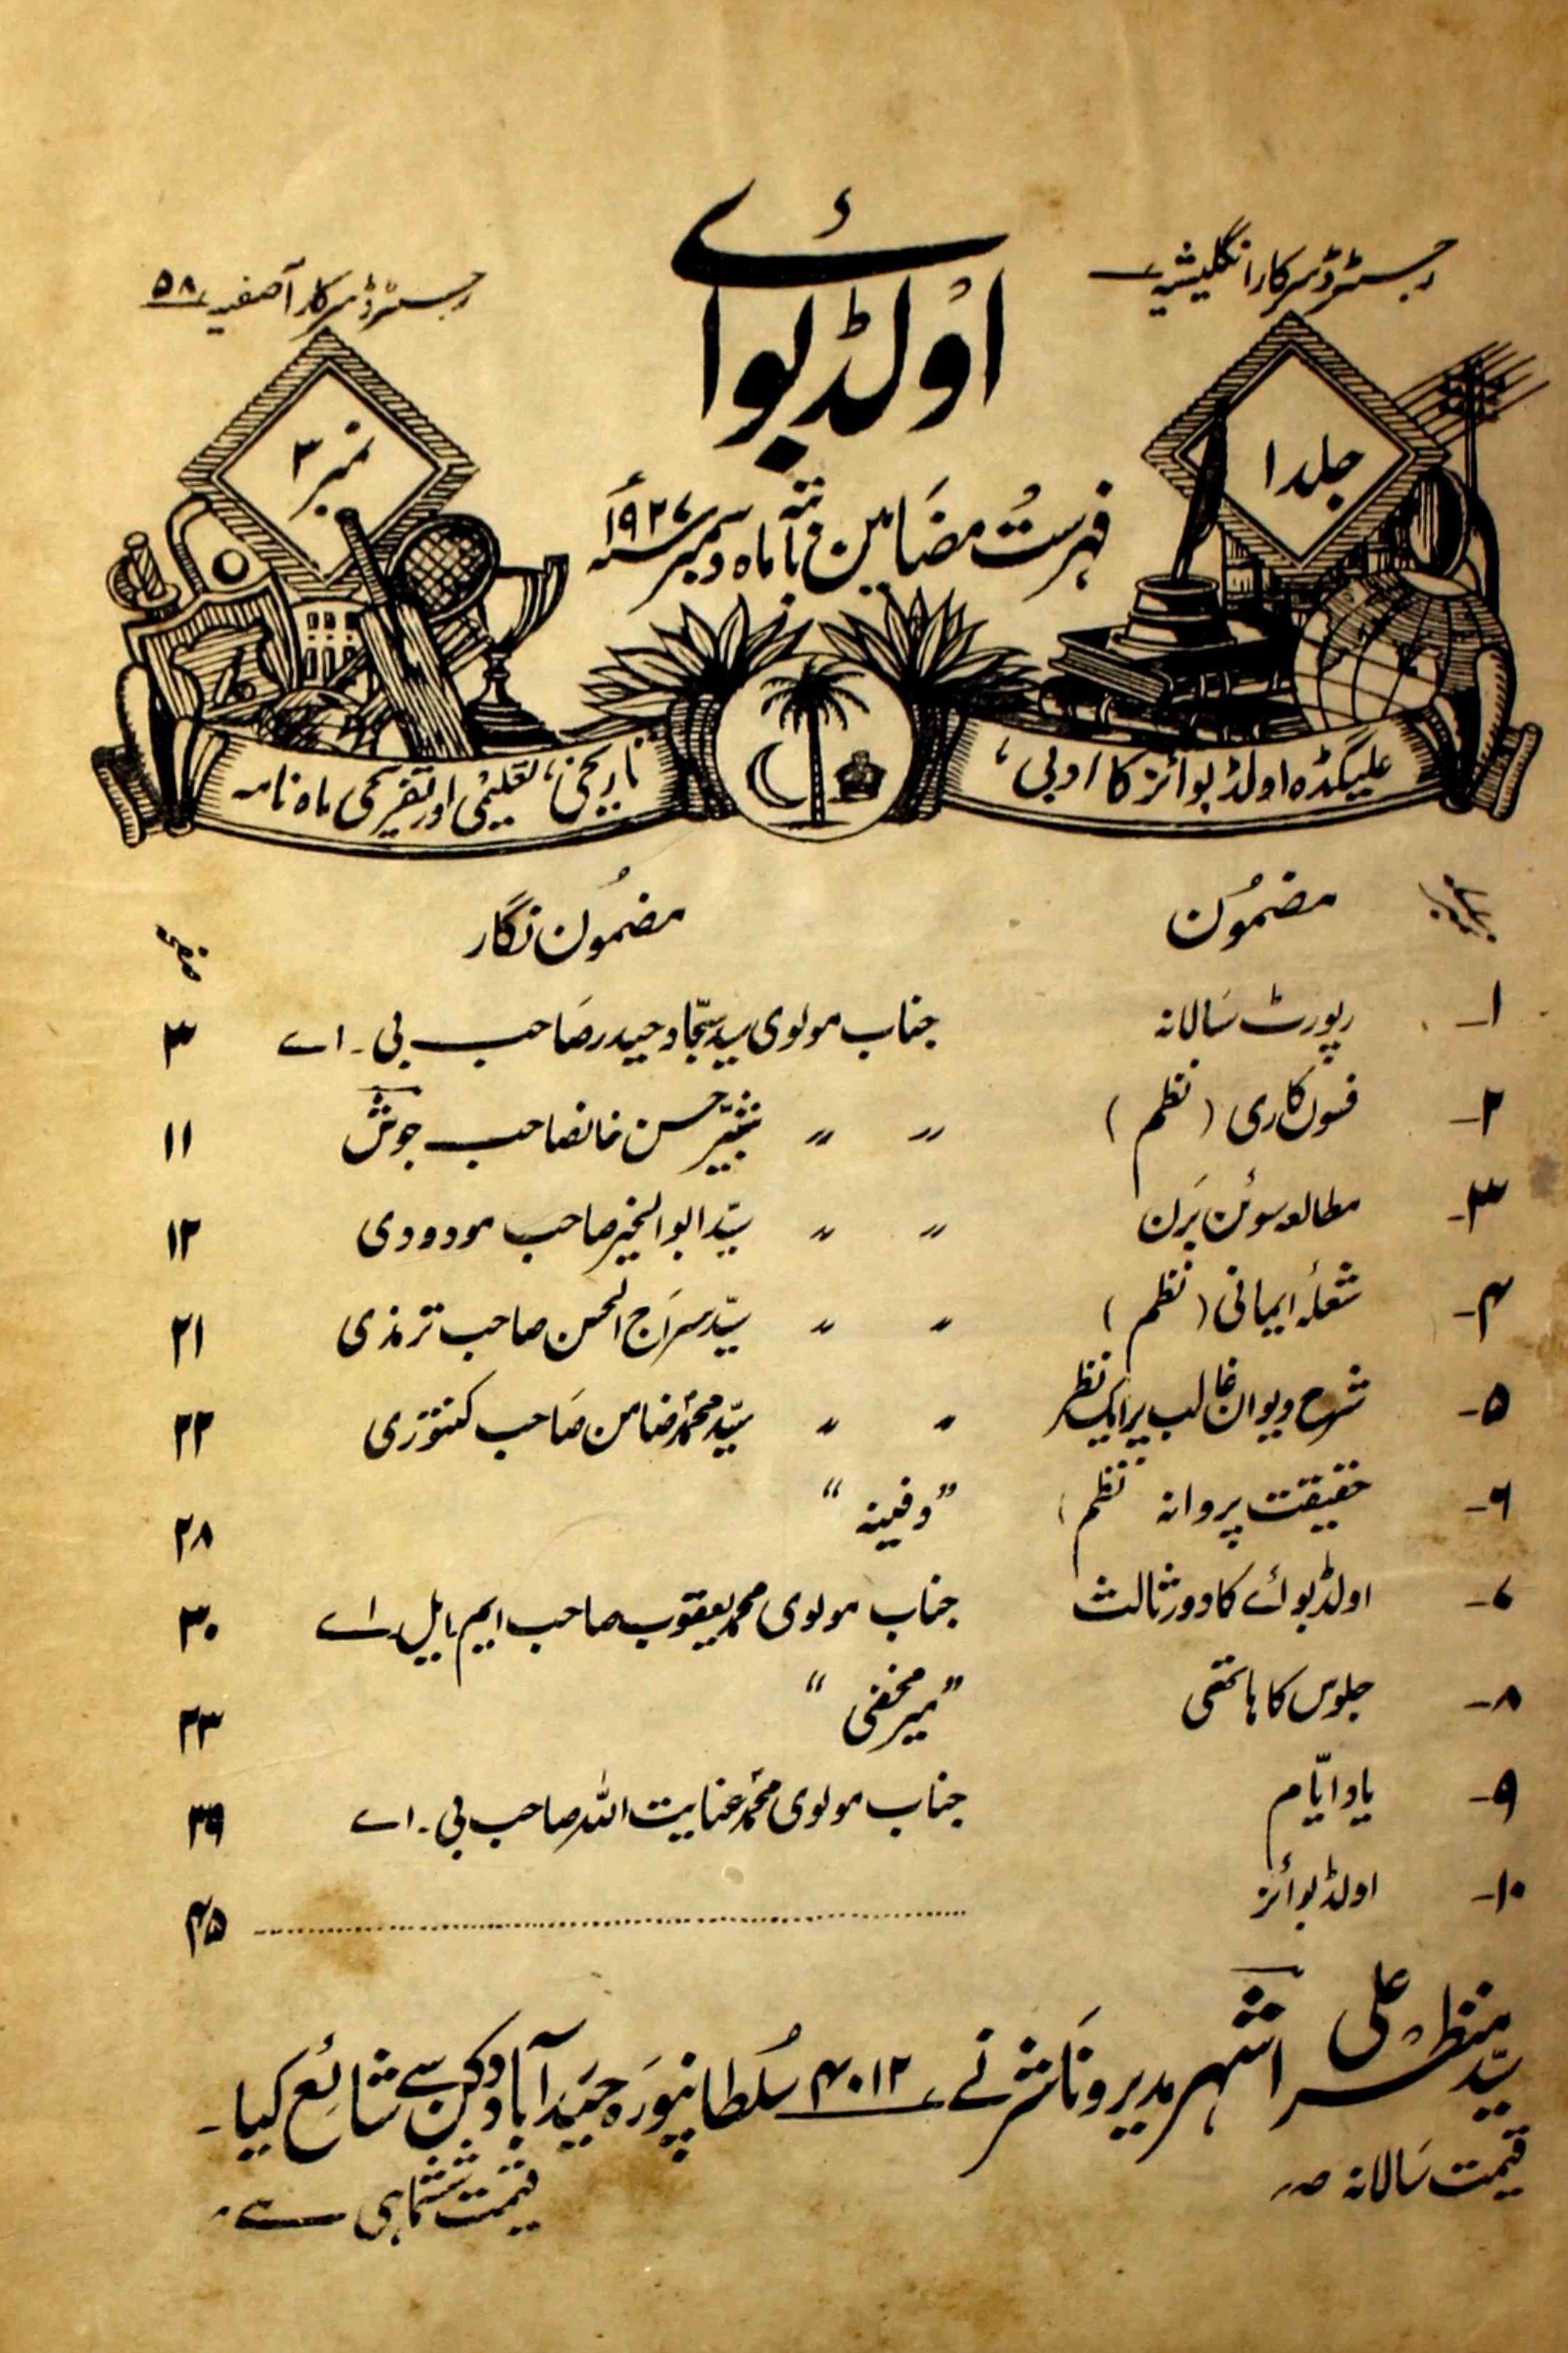 اولڈ بوائے
رجسٹرڈ سرکار انگلیشیہ
رجسٹرڈ سرکار آصفیہ ۵۸
جلد ۱
نمبر ۳
فہرست مضامین بابتہ ماہ دسمبر سنہ ۱۹۲۷ء
علیگڈہ اولڈ بوائز کا ادبی،
تاریخی، تعلیمی اور تفریحی ماہ نامہ
مضمون مضمون نگار صفحہ
۱- رپورٹ سالانہ جناب مولوی سید سجاد حیدر صاحب بی۔ اے ۳
۲- فسوں کاری (نظم) " " شبیر حسن خانصاحب جوش ۱۱
۳- مطالعہ سوئن برن " " سید ابو الخیر صاحب مودودی ۱۲
۴- شعلۂ ایمانی (نظم) " " سید سراج الحسن صاحب ترمذی ۲۱
۵- شرح دیوان غالب پر ایک نظر " " سید محمد ضامن صاحب کنتوری ۲۲
۶- حقیقت پروانہ نظم) "دفینہ" ۲۸
۷- اولڈ بوائے کا دور ثالث جناب مولوی محمد یعقوب صاحب ایم ایل اے ۳۰
۸- جلوس کا ہاتھی "میر مخفی" ۳۳
۹- یاد ایّام جناب مولوی محمد عنایت اللہ صاحب بی۔ اے ۳۹
۱۰- اولڈ بوائز ........ ۴۵
سید منظر علی اشہر مدیر و ناشر نے ۴۰۱۲ سلطانپورہ حیدآباد دکن سے شائع کیا۔
قیمت سالانہ
قیمت ششماہی